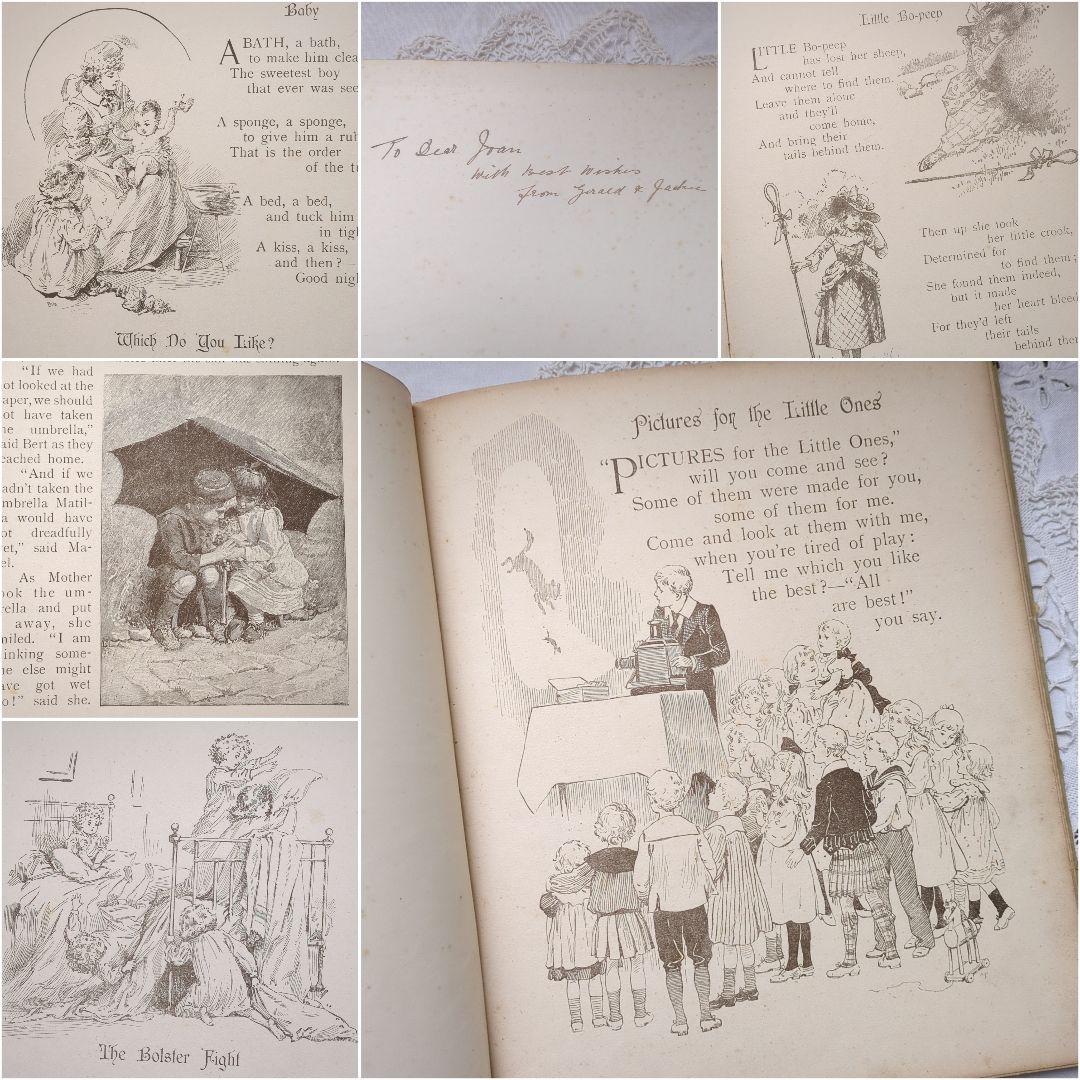 Baby
A BATH, a bath,
to make him clea
The sweetest boy
that ever was see
A sponge, a sponge,
to give him a rub
That is the order
of the tu
A bed, a bed,
and tuck him
in tigh
A kiss, a kiss,
and then?—
Good nigh
Which Do You Like?
To Dear Joan
With Best Wishes
from Gerald & Jackie
Little Bo-peep
LITTLE Bo-peep
has lost her sheep,
And cannot tell
where to find them.
Leave them alone
and they'll
come home,
And bring their
tails behind them.
Then up she took
her little crook,
Determined for
to find them;
She found them indeed,
but it made
her heart bleed
For they'd left
their tails
behind them
"If we had
ot looked at the
aper, we should
ot have taken
he umbrella,"
aid Bert as they
eached home.
"And if we
adn't taken the
mbrella Matil-
a would have
ot dreadfully
et," said Ma-
el.
As Mother
ook the um-
rella and put
away, she
miled. "I am
inking some-
ne else might
ave got wet
o!" said she.
The Bolster Fight
Pictures for the Little Ones
"PICTURES for the Little Ones,"
will you come and see?
Some of them were made for you,
some of them for me.
Come and look at them with me,
when you're tired of play:
Tell me which you like
the best?—"All
are best!"
you say.